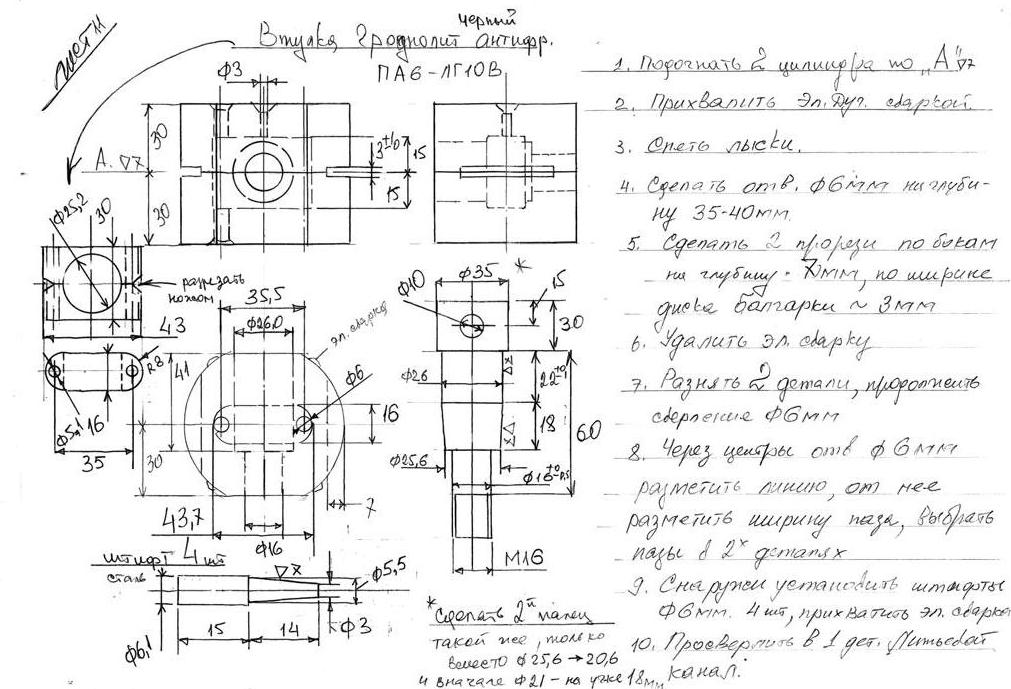 лист 11
черный
Втулка Гроднолит антифр.
ПА6-ЛГ10В
Ф3
30
30
3±1/0
15
15
А. ▽7
Ф25,2
30
разрезать
ножом
43
R8
Ф5,1
16
35
35,5
Ф26,0
эл. сварка
Ф6
41
16
30
7
43,7
Ф16
Ф35
*
Ф10
15
30
Ф26
22
18
60
Ф25,6
М16
штифт 4 шт
сталь
▽7
Ф5,5
Ф3
15
14
Ф6,1
* Сделать 2й палец
такой же, только
вместо Ф25,6→20,6
и вначале Ф21 – на уже 18мм
1. Подогнать 2 цилиндра по „А" ▽7
2. Прихватить Эл. Дуг. сваркой
3. Снеть лыски.
4. Сделать отв. Ф6мм на глуби-
ну 35-40мм.
5. Сделать 2 прорези по бокам
на глубину - 7мм, по ширине
диска балгарки ~ 3мм
6. Удалить эл. сварку
7. Разнять 2 детали, продолжить
сверление Ф6мм
8. Через центры отв Ф6мм
разметить линию, от нее
разметить ширину паза, выбрать
пазы в 2х деталях
9. Снаружи установить штифты
Ф6мм. 4 шт, прихватить эл. сварка
10. Просверлить в 1 дет. Литьевой
канал.